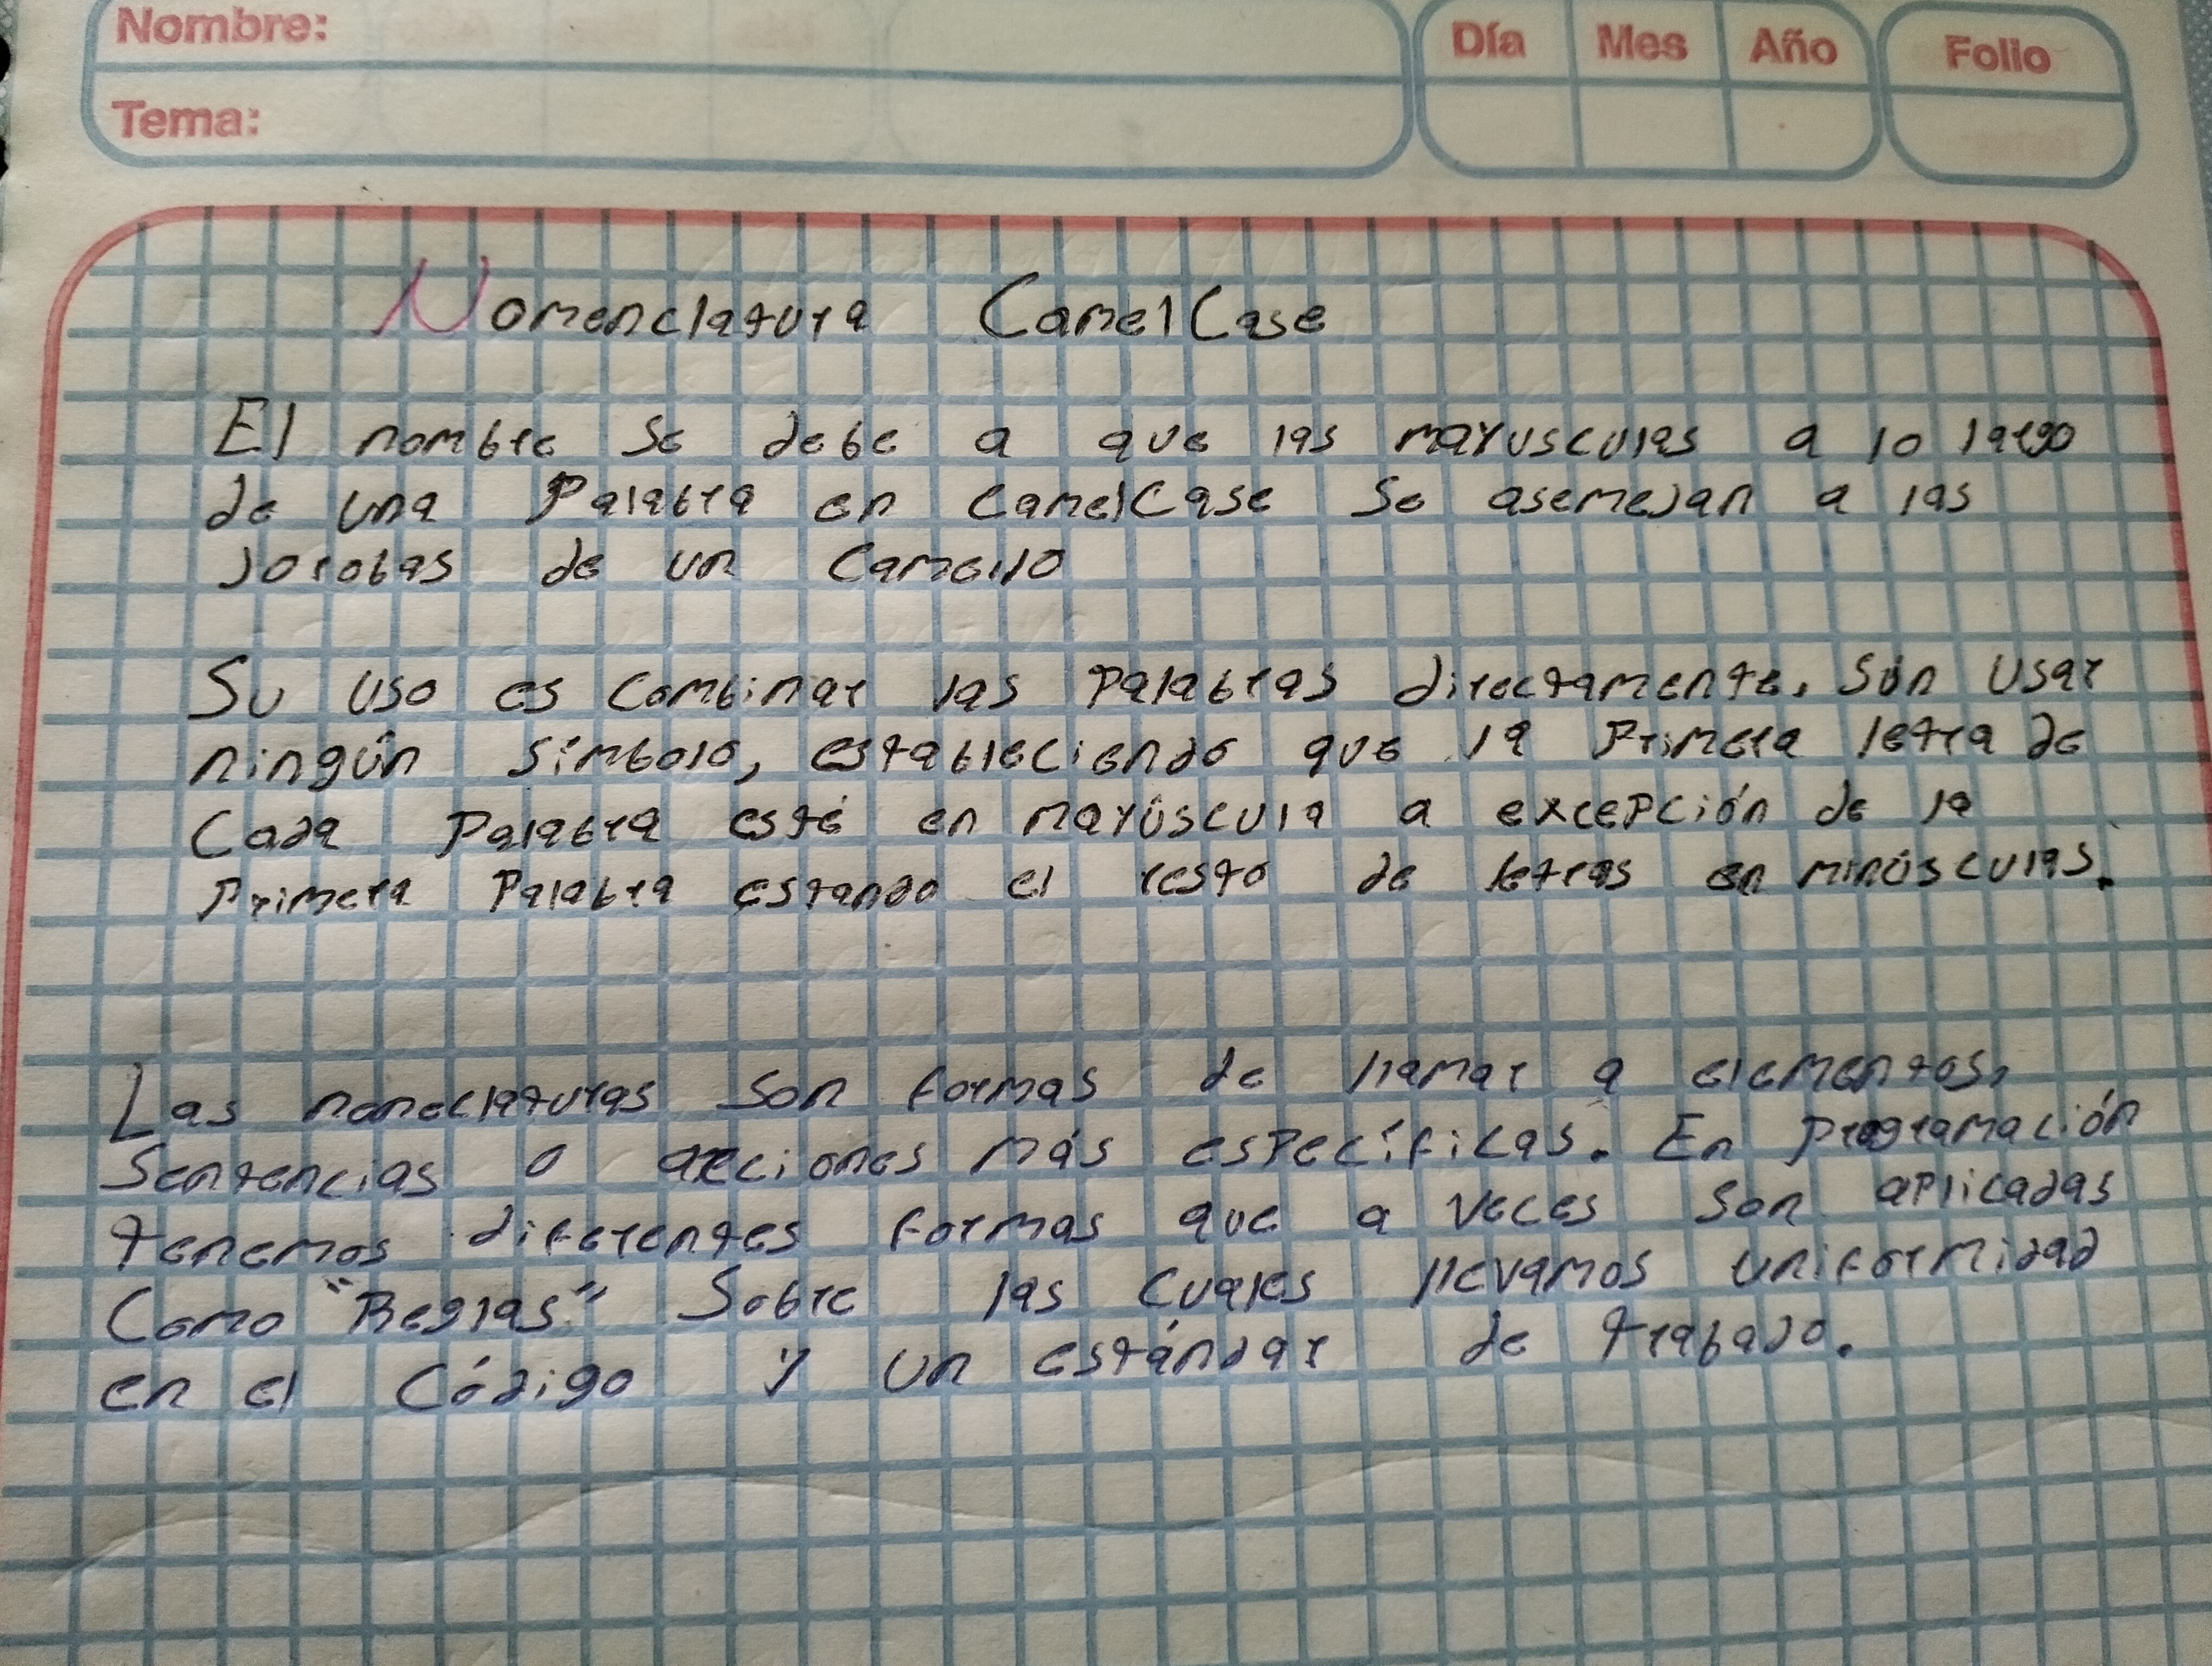 Nombre:
Día Mes Año Folio
Tema:
Nomenclatura CamelCase
El nombre se debe a que las mayusculas a lo largo
de una Palabra en CamelCase se asemejan a las
jorobas de un Camello
Su uso es Combinar las Palabras directamente, Sin Usar
ningún símbolo, estableciendo que la Primera letra de
Cada Palabra esté en mayúscula a excepción de la
Primera Palabra estando el resto de letras en minúsculas.
Las nomeclaturas son formas de llamar a elementos,
Sentencias o acciones más específicas. En Programación
tenemos diferentes formas que a veces son aplicadas
Como "Reglas" Sobre las cuales llevamos uniformidad
en el Código y un estándar de trabajo.